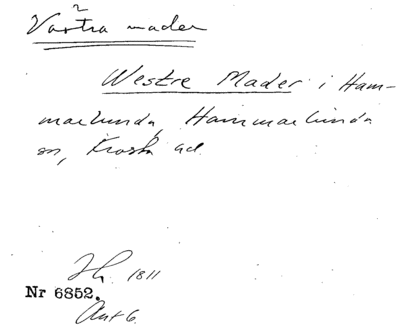 Västra mader
Westre Mader i Ham-
marlunda, Hammarlunda
sn, Frosta hd
1811
Nr 6852.
Akt 6